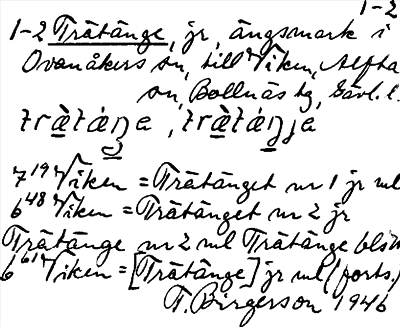 1-2
1-2 Trätänge, jr, ängsmark i
Ovanåkers sn, till Viken, Alfta
sn, Bollnäs tg, Gävl. l.
7¹⁹ Viken = Trätänget nr 1 jr ml
6⁴⁸ Viken = Trätänget nr 2 jr
Trätänge nr 2 ml Trätänge
6⁶¹ Viken = [Trätänge] jr ml (forts.)
T. Birgerson 1946